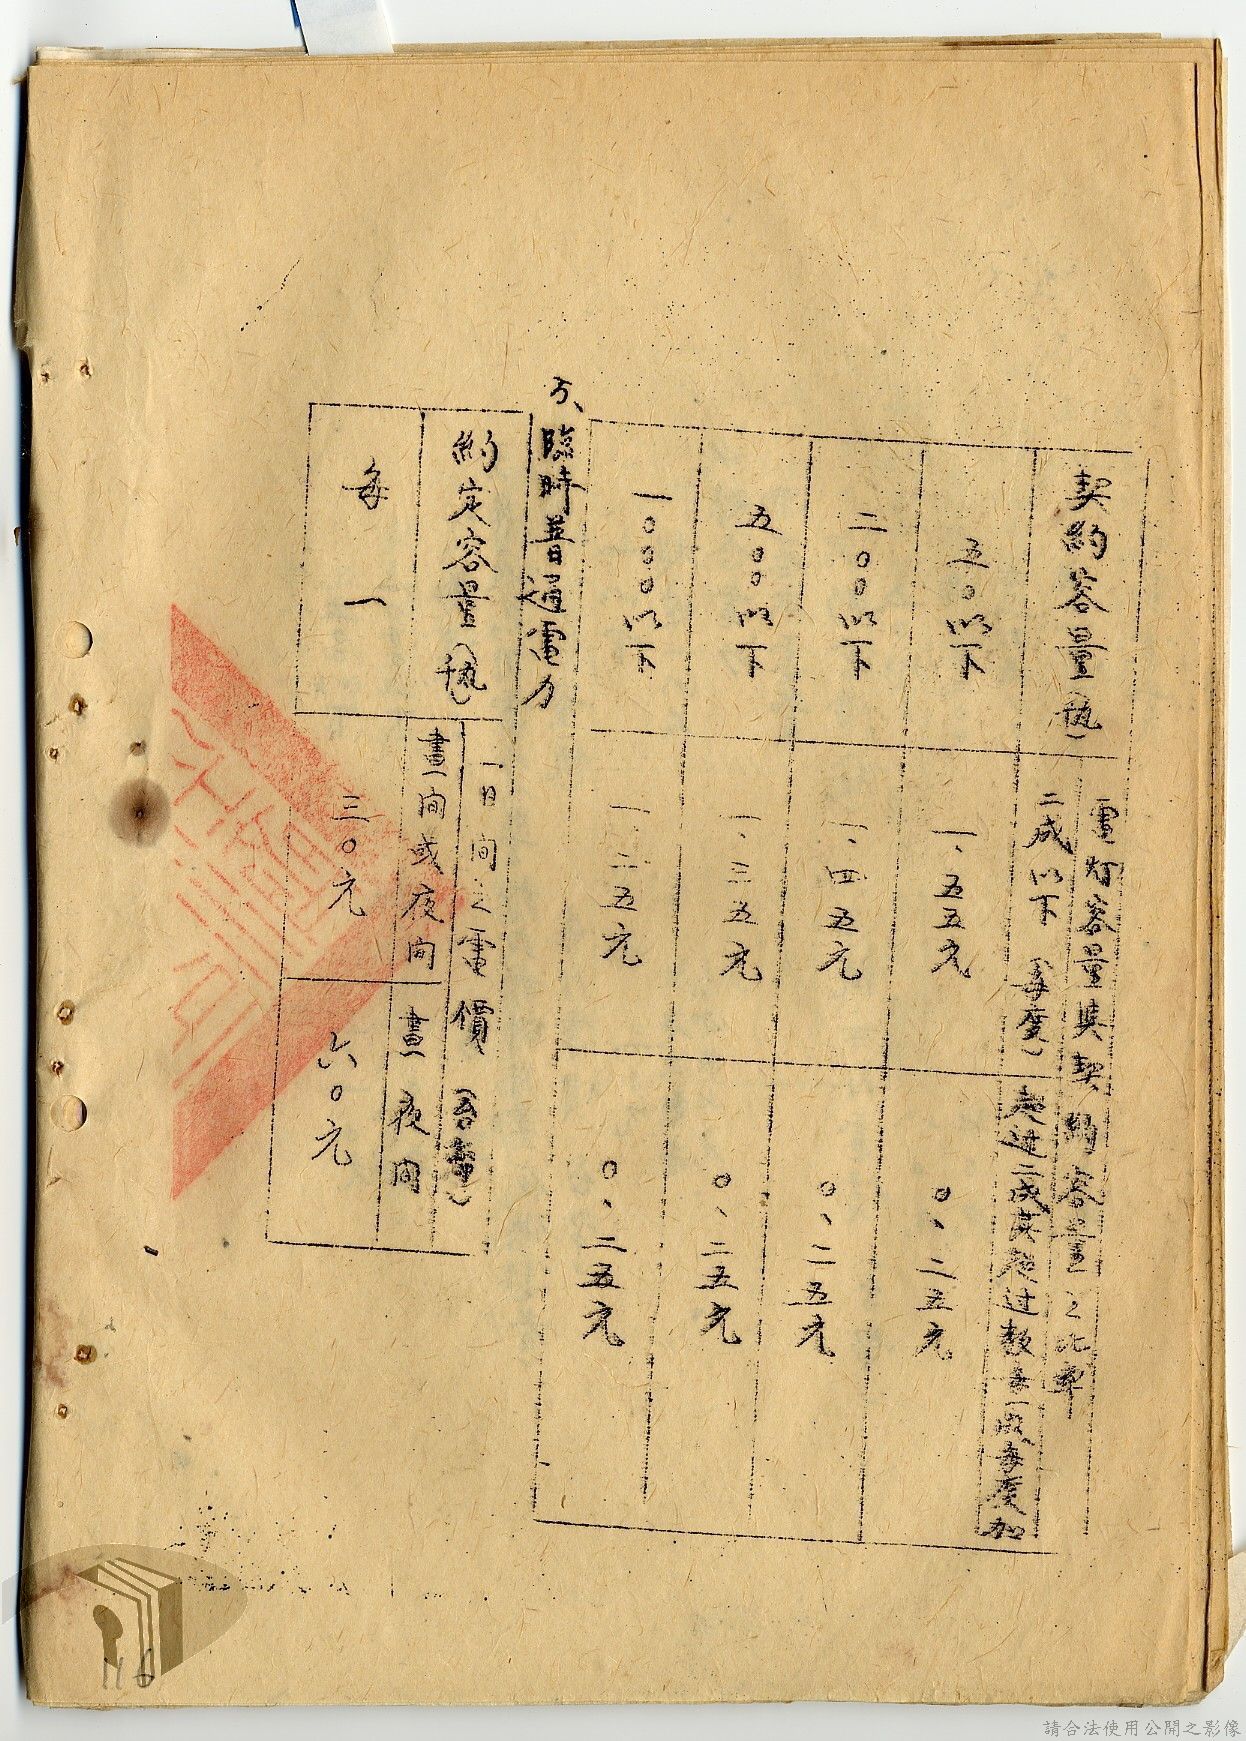 契約容量(瓩)
電灯容量與契約容量之比率
二成以下(每度)
超過二成其超過數每一成每度加
五〇以下
一、五五元
〇、二五元
二〇〇以下
一、四五元
〇、二五元
五〇〇以下
一、三五元
〇、二五元
一〇〇〇以下
一、二五元
〇、二五元
臨時普通電力
約定容量(瓩)
一日間之電價(台幣)
晝間或夜間
晝夜間
每一
三〇元
六〇元
116
請合法使用公開之影像